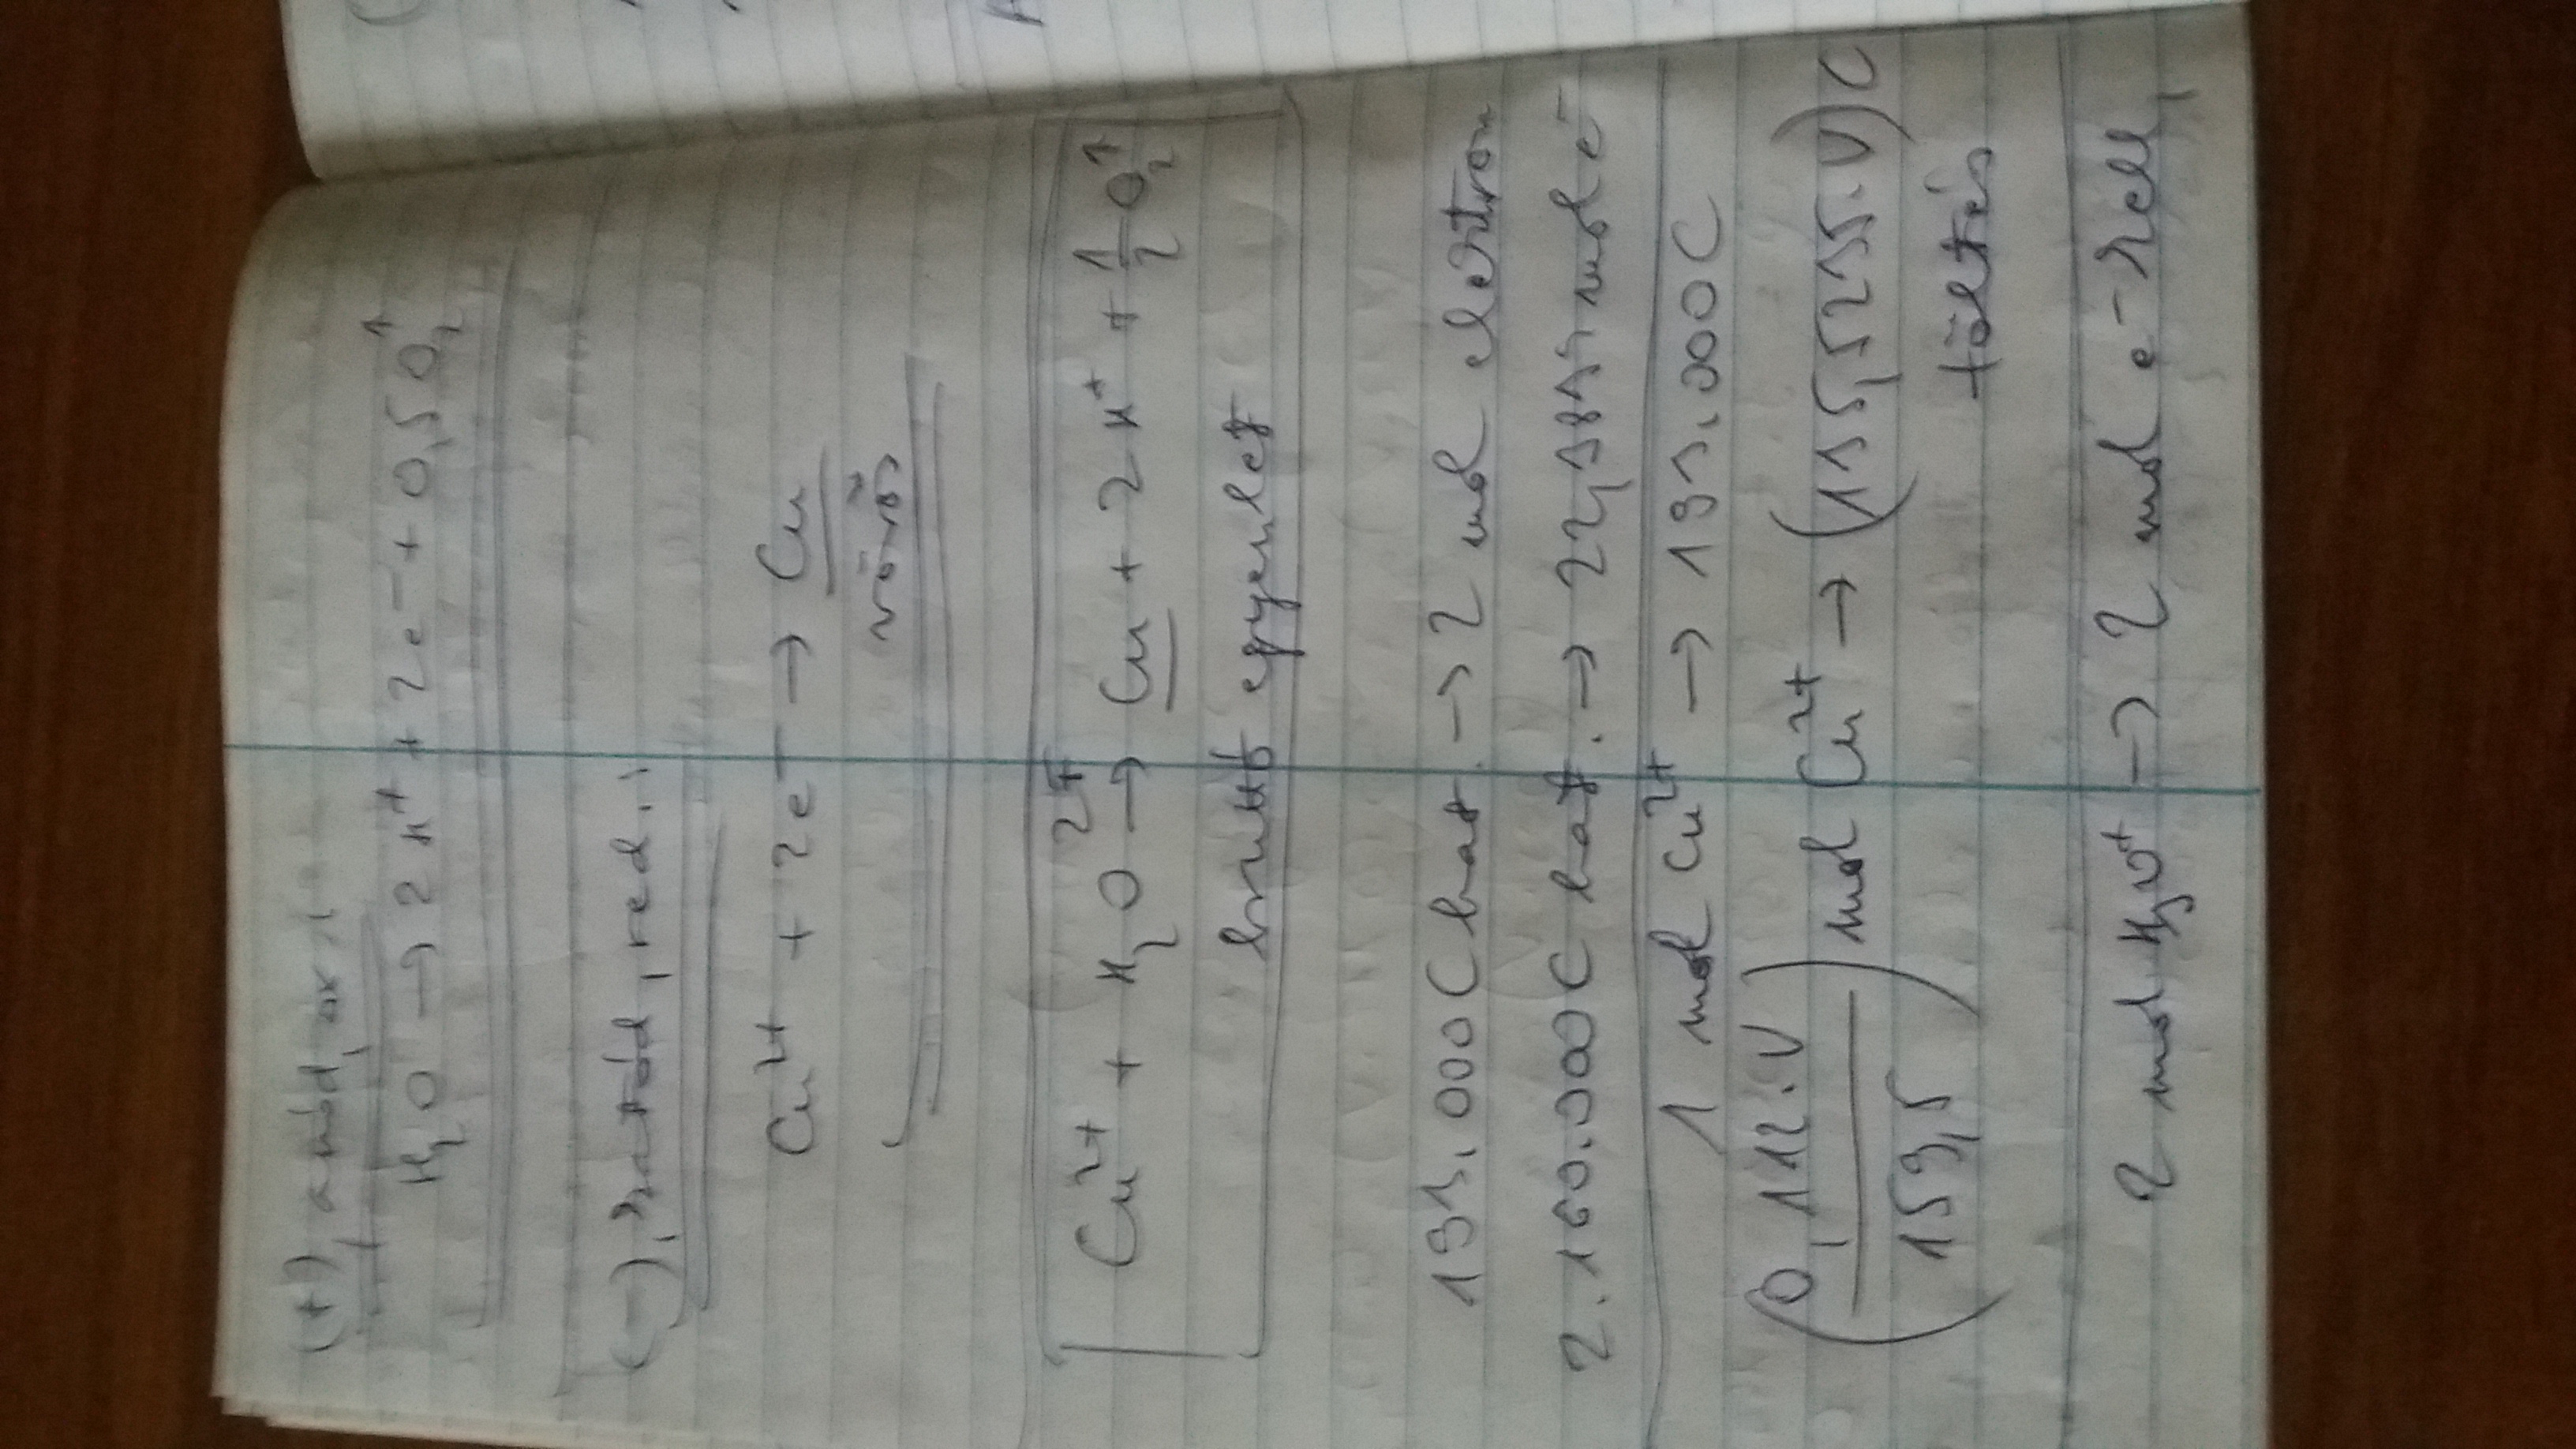 (+), anód, ox.
H₂O → 2 H⁺ + 2e⁻ + 0,5 O₂↑
(-), katód, red.
Cu²⁺ + 2e⁻ → Cu
vörös
Cu²⁺ + H₂O → Cu + 2 H⁺ + 1/2 O₂↑
2F
bruttó egyenlet
193.000 C hat. → 2 mol elektron
2.160.000 C hat. →
1 mol Cu²⁺ → 193.000 C
(0,112.V / 159,5) mol Cu²⁺ → (135,525.V) C
töltés
2 mol H₃O⁺ → 2 mol e⁻ kell,